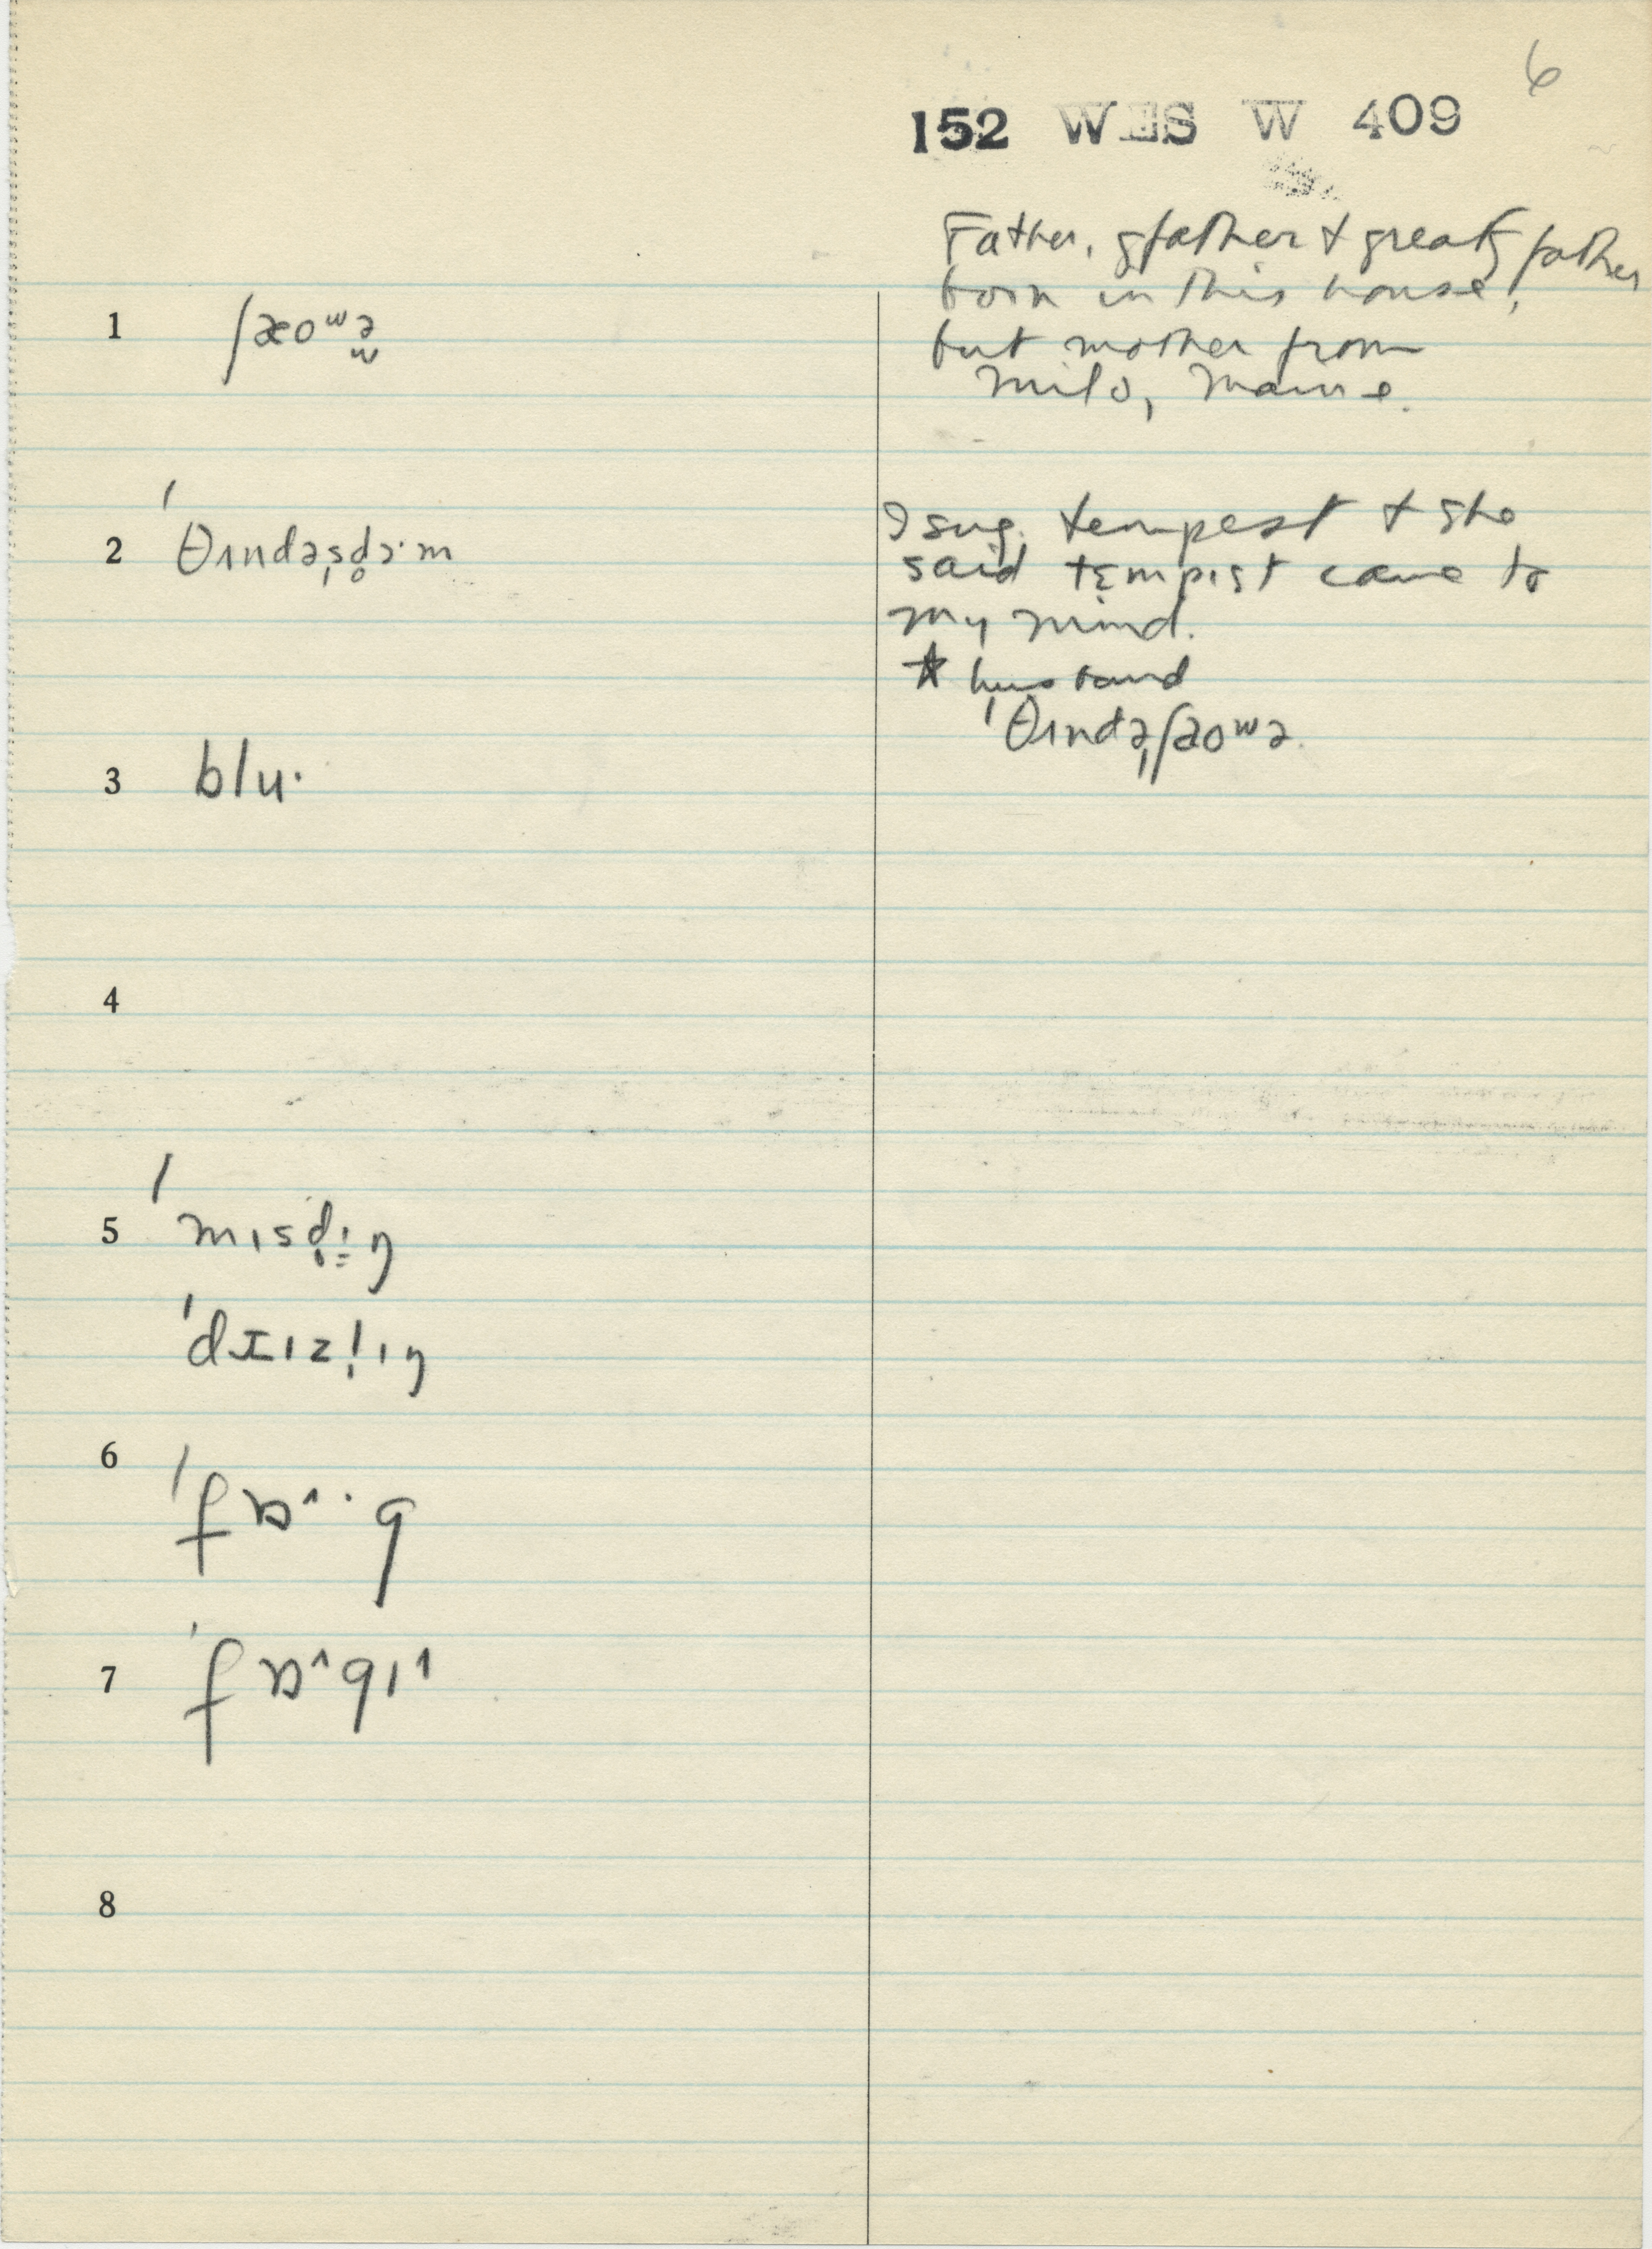 6
152 WES W 409
Father, gfather + great g father
born in this house,
but mother from
Milo, Maine.
1 ʃæoʷə̬
2 ˈθɪndəˌsd̥ɔ·m
I sug. tempest + she
said tɛmpɪst came to
my mind.
* husband
ˈθɪndəˌʃaoʷə
3 blu·
4
5 ˈmɪsd̥ɪŋ
ˈdɹɪzl̩ɪŋ
6 ˈfɒ^·g
7 ˈfɒ^gɪ^
8